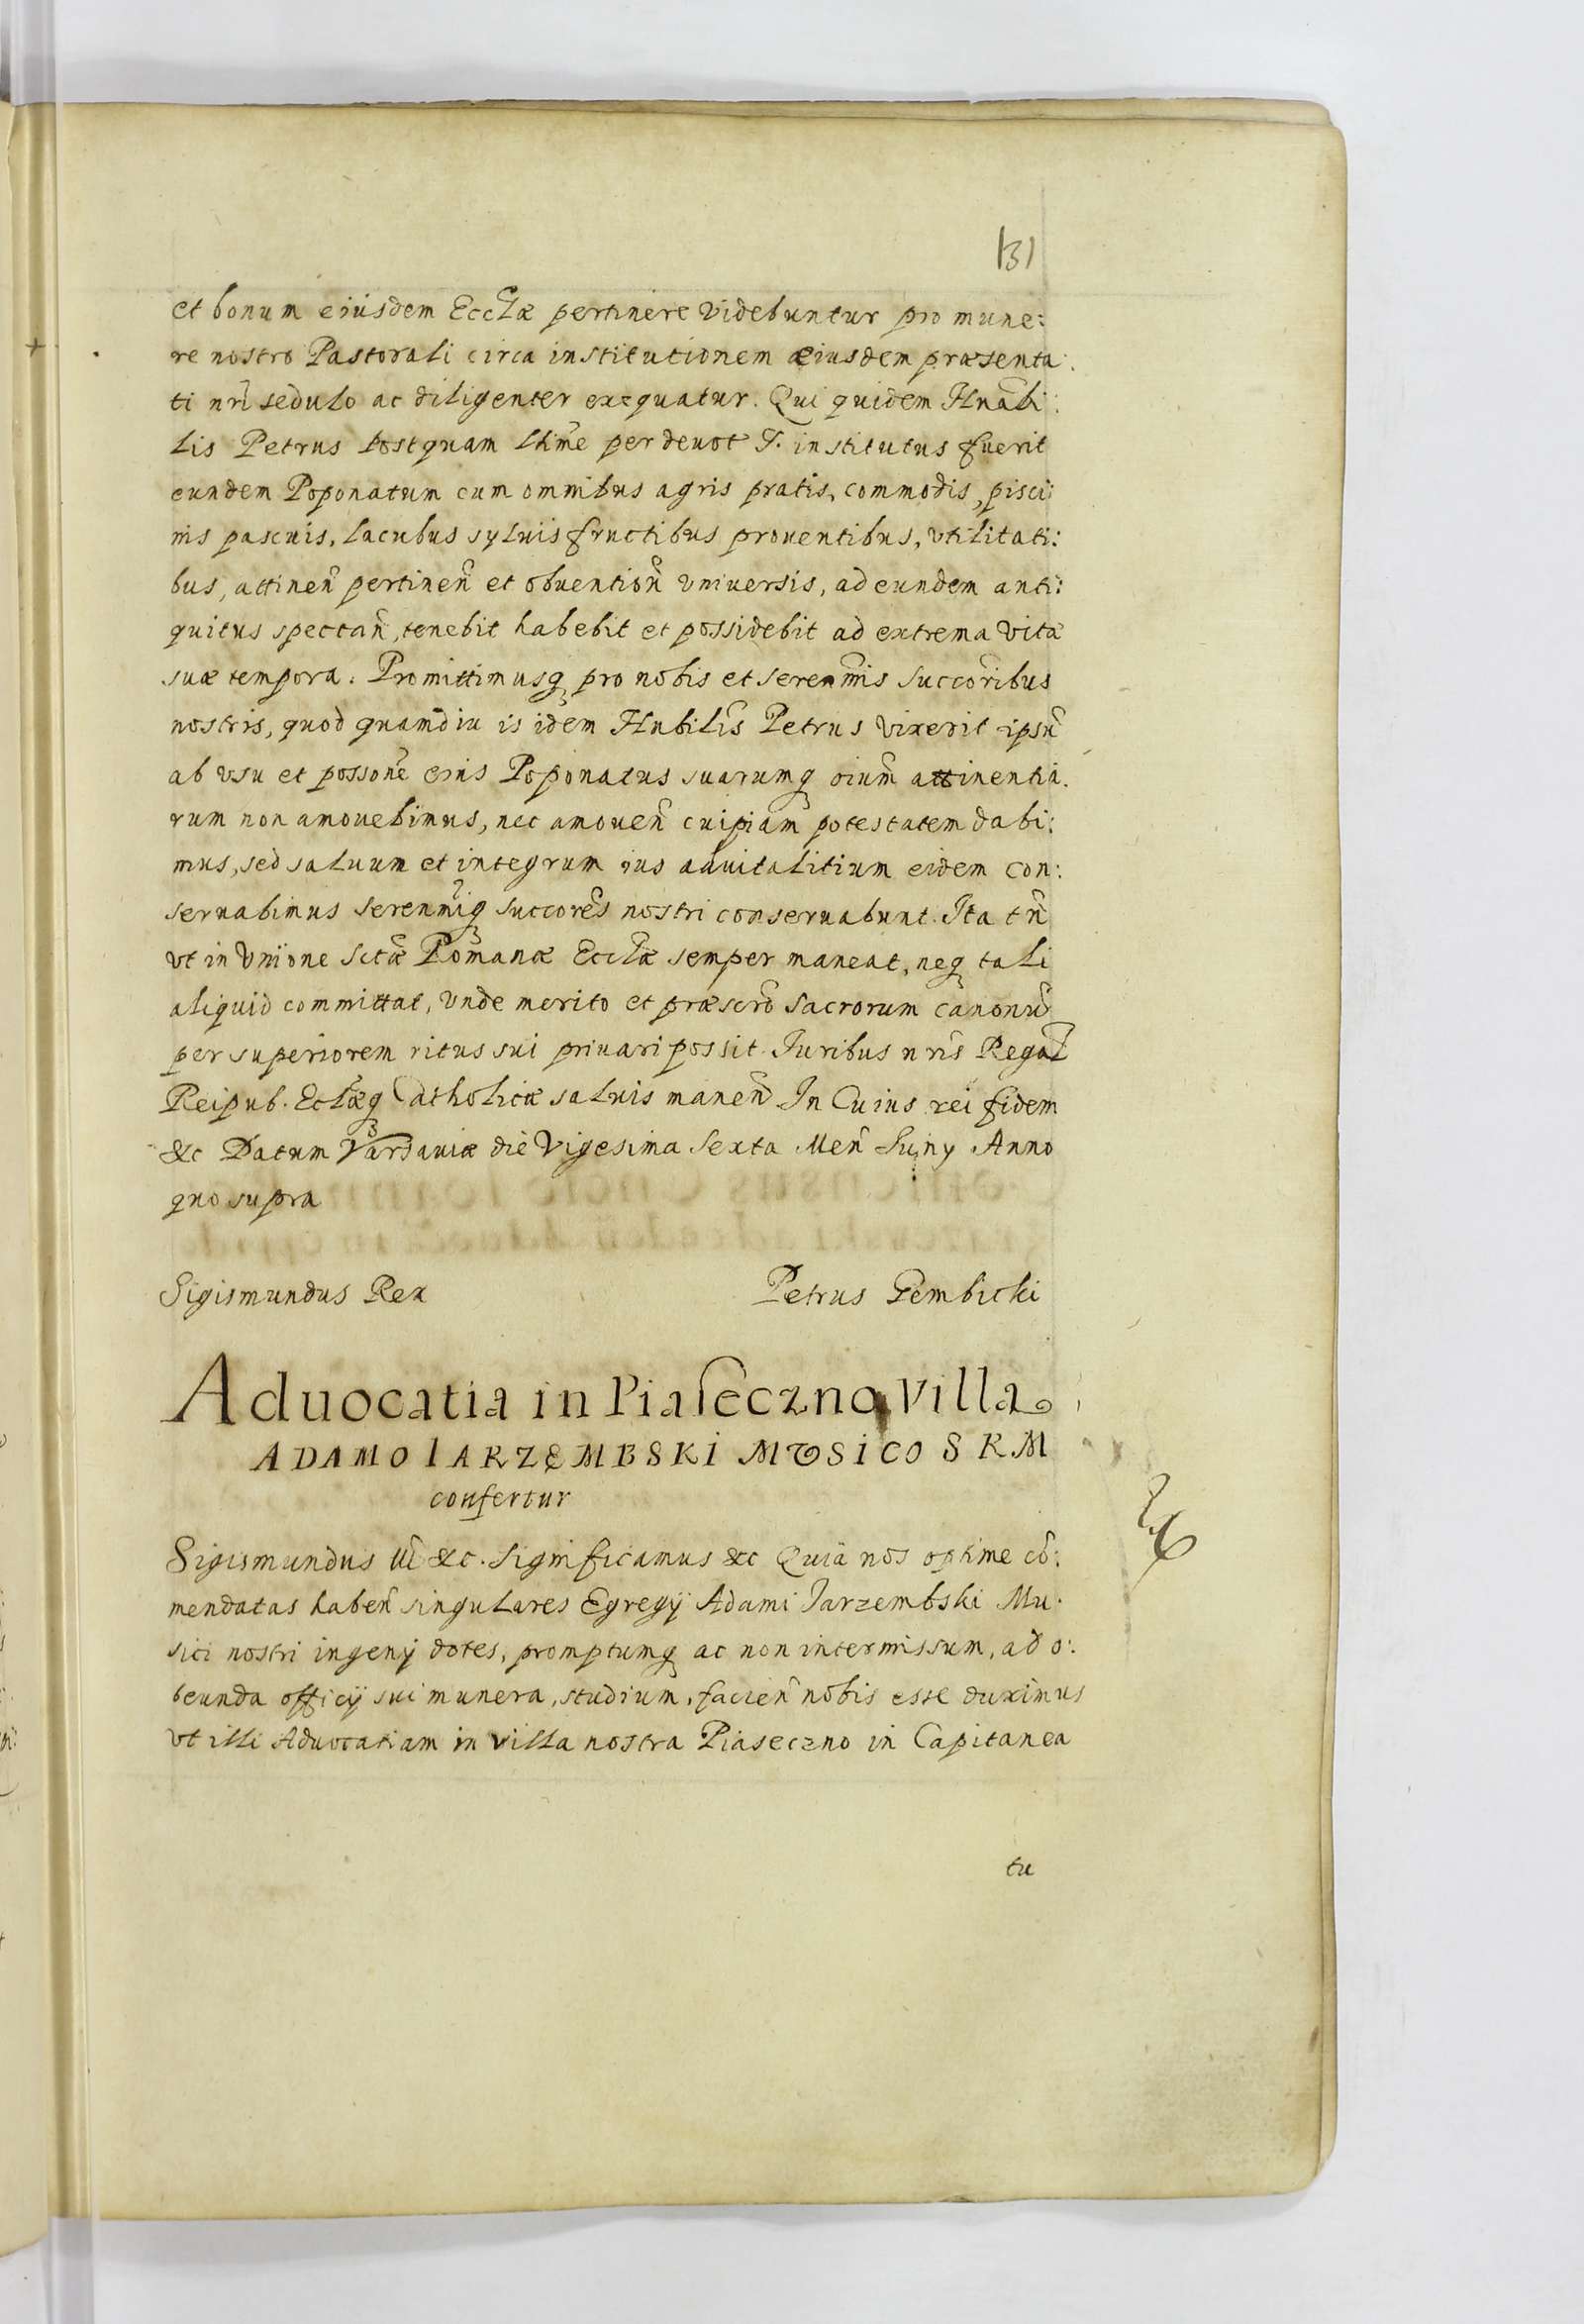 131
et bonum eiusdem Ecclæ pertinere videbuntur pro mune:
re nostro Pastorali circa institutionem eiusdem præsenta:
ti nri sedulo ac diligenter exequatur. Qui quidem Hnabi:
lis Petrus postquam lthme per devot S. institutus fuerit
eundem Poponatum cum omnibus agris pratis, commodis, pisci:
nis pascuis, lacubus syluis fructibus prouentibus, vtilitati:
bus, attinen pertinen et obuention vniuersis, ad eundem anti:
quitus spectan, tenebit habebit et possidebit ad extrema vitæ
suæ tempora. Promittimusq pro nobis et serenmis succoribus
nostris, quod quamdiu is idem Hnbilis Petrus vixerit ipsu
ab vsu et possone eius Poponatus suarumq oium attinentia.
rum non amouebimus, nec amouen cuipiam potestatem dabi:
mus, sed saluum et integrum ius aduitalitium eidem con:
seruabimus serenmiq succores nostri conseruabunt. Ita tn
vt in Vnione sctæ Romanæ Ecclæ semper maneat, neq tali
aliquid committat, vnde merito et præscro sacrorum canonu
per superiorem ritus sui priuari possit. Juribus nris Regal
Reipub. Eclæq Catholicæ saluis manen In Cuius rei fidem
&c Datum Varsauiæ die Vigesima Sexta Men Juny Anno
quo supra
Sigismundus Rex Petrus Gembicki
Aduocatia in Piaseczno Villa
ADAMO IARZEMBSKI MUSICO S R M
confertur
Sigismundus III &c. Significamus &c Quia nos optime co:
mendatas haben singulares Egregij Adami Jarzembski Mu.
sici nostri ingenij dotes, promptumq ac non intermissum, ad o:
beunda officij sui munera, studium, facien nobis esse duximus
vt illi Aduocatiam in villa nostra Piaseczno in Capitanea
tu